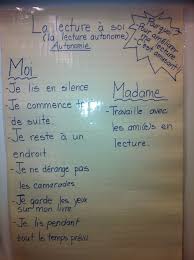 La lecture à soi
(la lecture autonome)
Autonomie
Pourquoi?
Pour
une
lecture
C'est amusant!
Moi
-Je lis en silence
Je commence
de suite.
-Je reste à un
endroit.
-Je ne dérange pas
les camarades
-Je garde les yeux
sur mon livre
-Je lis pendant
tout le temps prévu
Madame
-Travaille avec
les ami(e)s en
lecture.